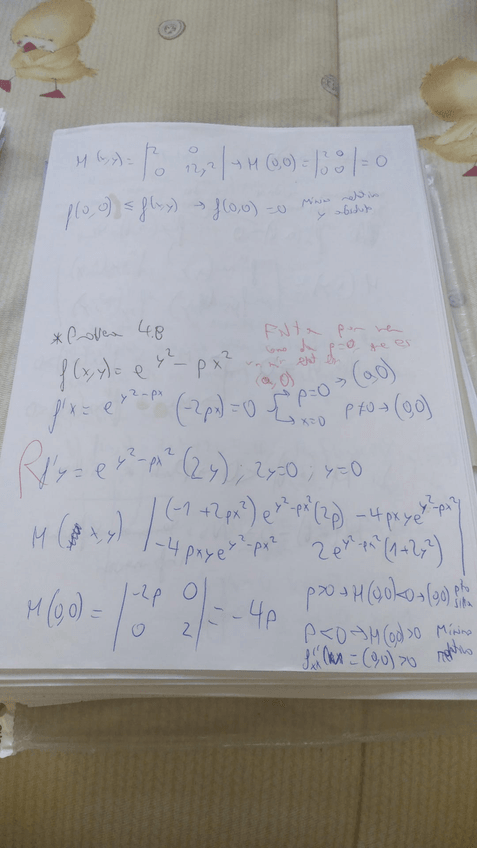 H(x,y) = |2 0; 0 12y²| → H(0,0) = |2 0; 0 0| = 0
f(0,0) ≤ f(x,y) → f(0,0) = 0 Mínimo relativo
y absoluto
* Problema 4.8
Falta por ver
f(x,y) = e^{y²-px²}
p=0
(a,0)
f'x = e^{y²-px} (-2px) = 0 { p=0 → (a,0)
x=0 p≠0 → (0,0)
f'y = e^{y²-px²} (2y) ; 2y=0 ; y=0
H(x,y) | (-1+2px²) e^{y²-px²} (2p) -4pxye^{y²-px²}
-4pxye^{y²-px²} 2e^{y²-px²} (1+2y²) |
H(0,0) = |-2p 0; 0 2| = -4p
p>0 → H(0,0)<0 → (0,0) pto
silla
p<0 → H(0,0)>0 Mínimo
f''xx = (0,0) > 0 relativo